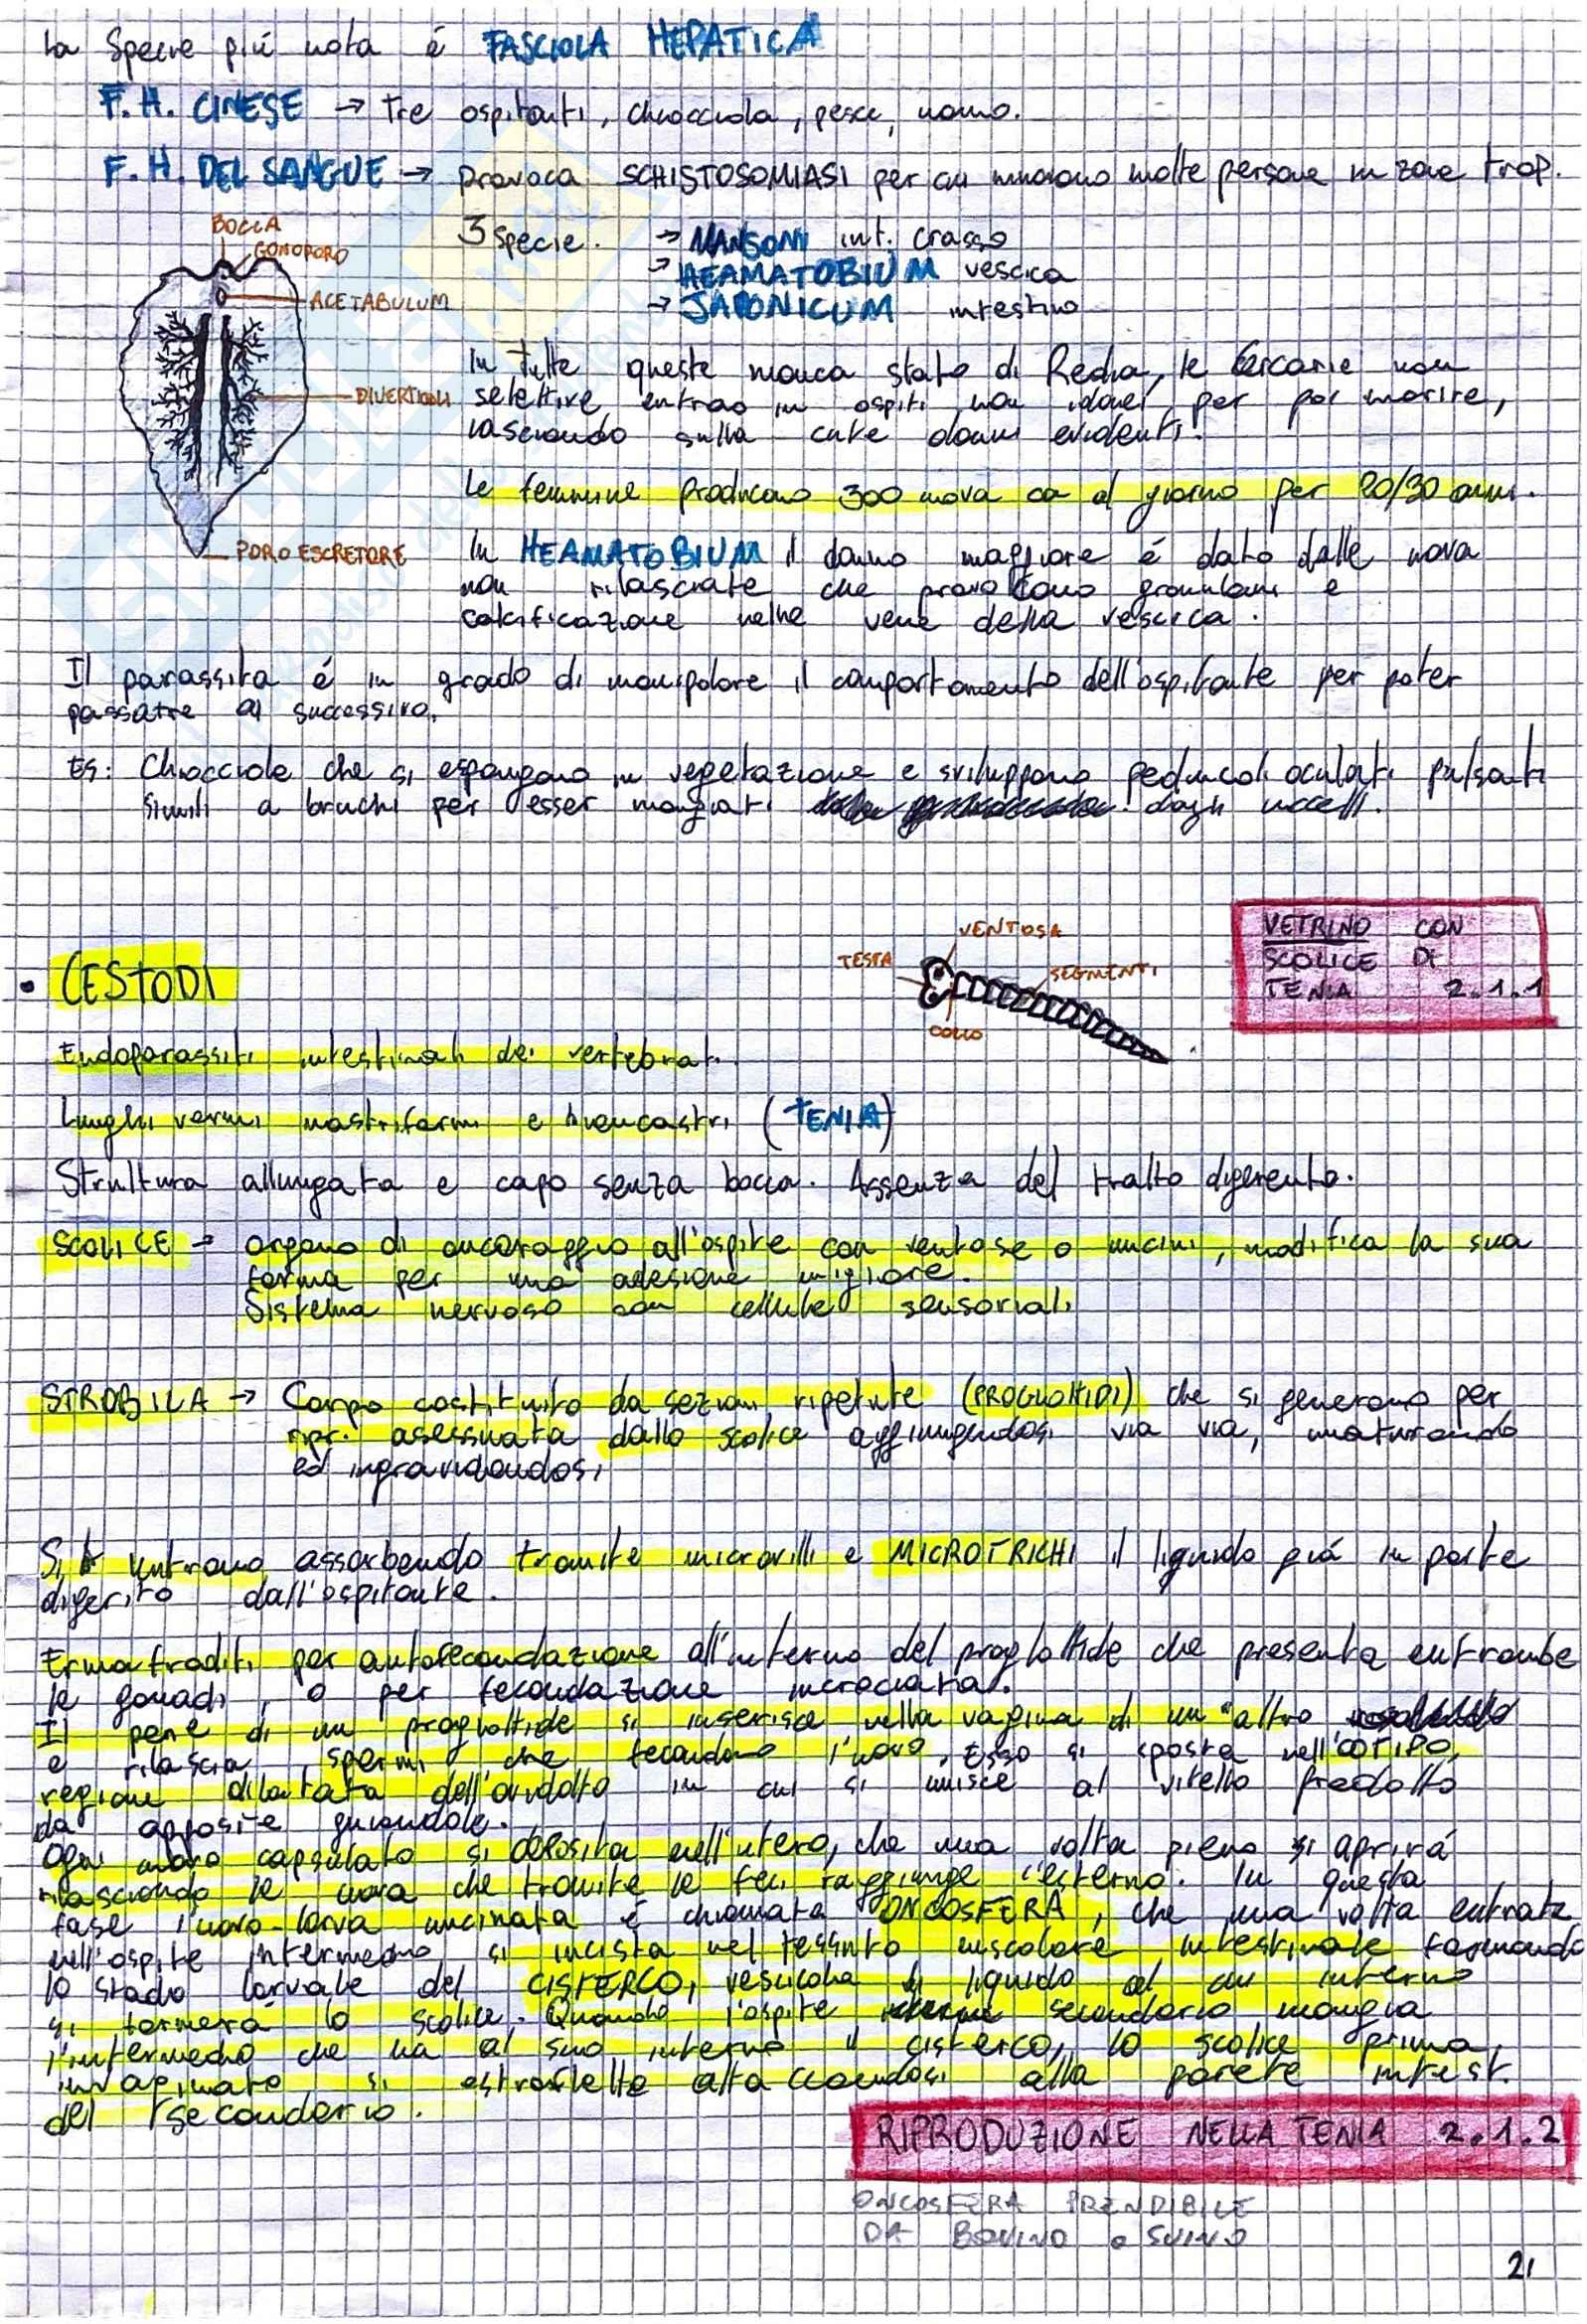 La specie più nota é FASCIOLA HEPATICA
F.H. CINESE → tre ospitanti, chiocciola, pesce, uomo.
F.H. DEL SANGUE → provoca SCHISTOSOMIASI per cui muoiono molte persone in zone trop.
3 specie. → MANSONI int. crasso
→ HEAMATOBIUM vescica
→ JAPONICUM intestino
BOCCA
GONOPORO
ACETABULUM
DIVERTICOLI
PORO ESCRETORE
In tutte queste manca stato di Redia, le cercarie non
selettive entrao in ospiti non idonei per poi morire,
lasciando sulla cute danni evidenti.
Le femmine producono 300 uova ca al giorno per 20/30 anni.
In HEAMATOBIUM il danno maggiore é dato dalle uova
non rilasciate che provocano granulomi e
calcificazione nelle vene della vescica.
Il parassita é in grado di manipolare il comportamento dell'ospitante per poter
passatre al successivo.
ES: Chiocciole che si espongono in vegetazione e sviluppano peduncoli oculati pulsanti
simili a bruchi per esser mangiati dagli uccelli.
VETRINO CON
SCOLICE DI
TENIA 2.1.1
VENTOSA
TESTA
SEGMENTI
COLLO
• CESTODI
Endoparassiti intestinali dei vertebrati.
Lunghi vermi nastriformi e biancastri (TENIA)
Struttura allungata e capo senza bocca. Assenza del tratto digerente.
SCOLICE → organo di ancoraggio all'ospite con ventose o uncini, modifica la sua
forma per una adesione migliore.
Sistema nervoso con cellule sensoriali
STROBILA → Corpo costituito da sezioni ripetute (PROGLOTTIDI) che si generano per
ripr. asessuata dallo scolice aggiungendosi via via, maturando
ed ingravidandosi
Si nutrono assorbendo tramite microvilli e MICROTRICHI il liquido giá in parte
digerito dall'ospitante.
Ermafroditi per autofecondazione all'interno del proglottide che presenta entrambe
le gonadi, o per fecondazione incrociata.
Il pene di un proglottide si inserisce nella vagina di un altro
e rilascia spermi che fecondano l'uovo. Esso si sposta nell'OOTIPO,
regione dilatata dell'ovidotto in cui si unisce al vitello prodotto
da apposite ghiandole.
Ogni uovo capsulato si deposita nell'utero, che una volta pieno si aprirá
rilasciando le uova che tramite le feci raggiunge l'esterno. In questa
fase l'uovo-larva uncinata é chiamata ONCOSFERA, che una volta entrata
nell'ospite intermedio si incista nel tessuto muscolare intestinale formando
lo stadio larvale del CISTERCO, vescicola di liquido al cui interno
si formerá lo scolice. Quando l'ospite secondario mangia
l'intermedio che ha al suo interno il cisterco, lo scolice prima
invaginato si estroflette attaccandosi alla parete intest.
del secondario.
RIPRODUZIONE NELLA TENIA 2.1.2
ONCOSFERA PRENDIBILE
DA BOVINO o SUINO
21